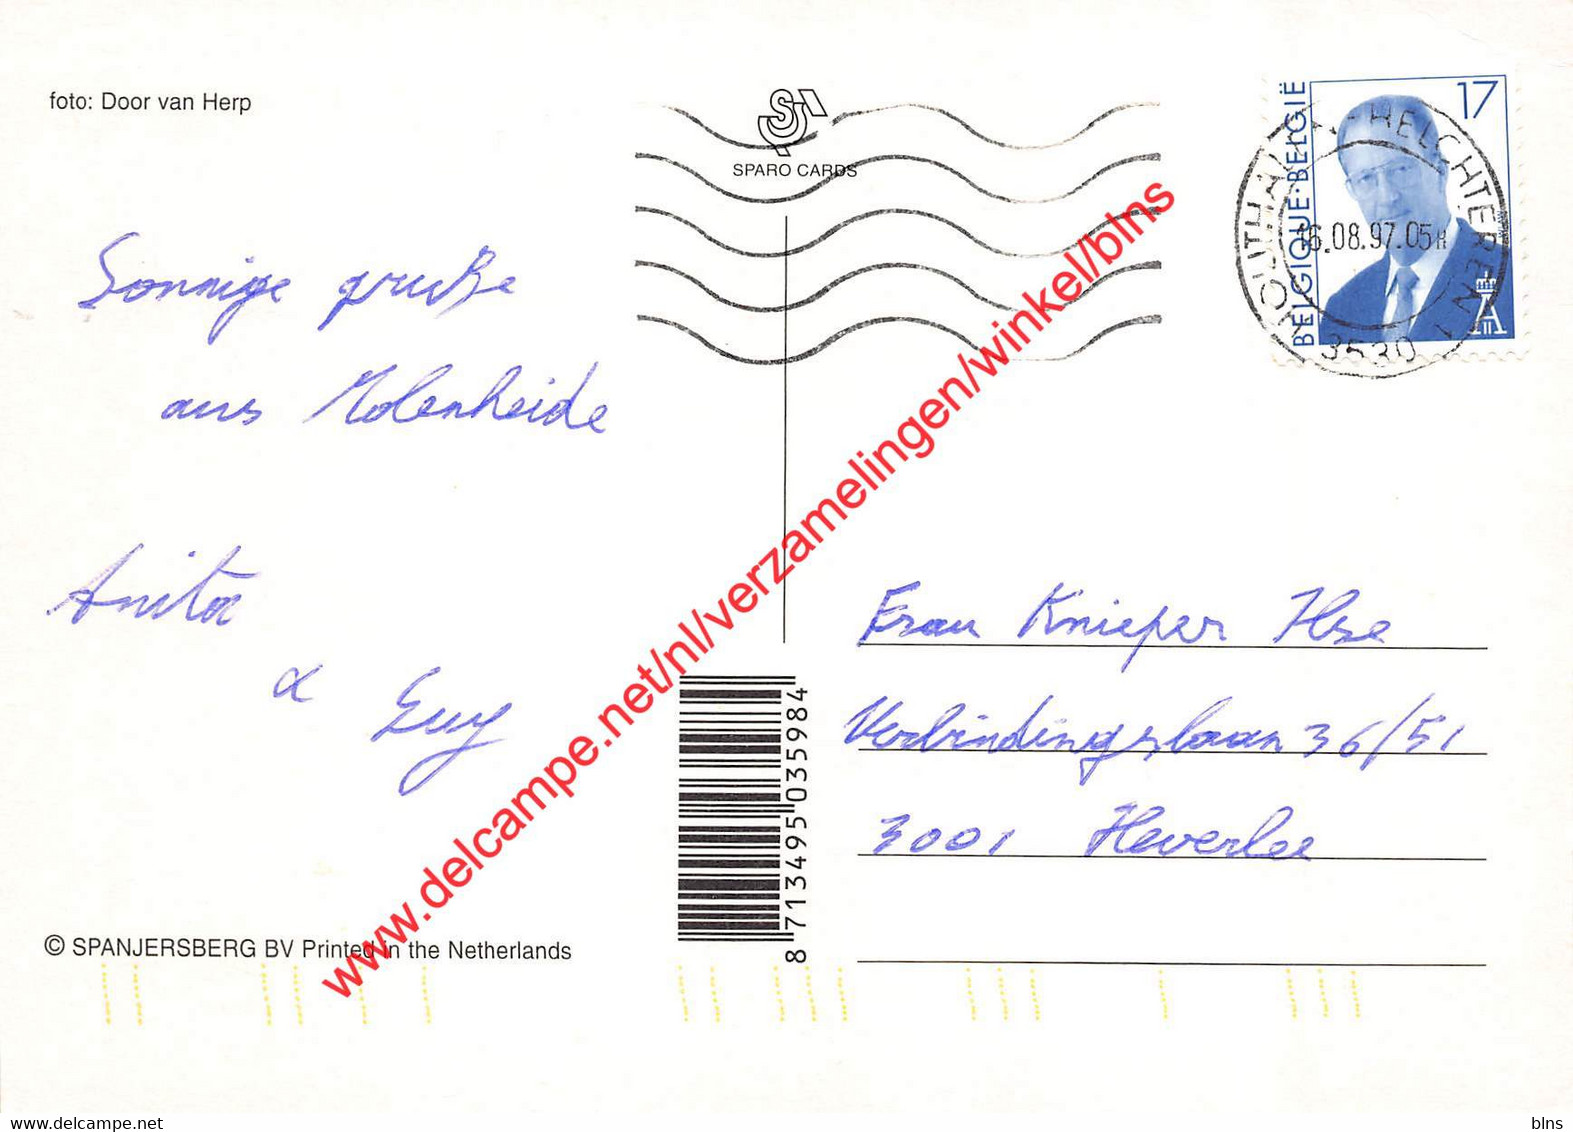 foto: Door van Herp
SPARO CARDS
17
BELGIQUE·BELGIË
HOUTHALEN-HELCHTEREN 1
16.08.97.05H
3530
Sonnige grüße
aus Molenheide
Anita
&
Guy
Frau Knieper Ilse
Verbindingslaan 36/51
3001 Heverlee
8 713495 035984
© SPANJERSBERG BV Printed in the Netherlands
www.delcampe.net/nl/verzamelingen/winkel/blns
www.delcampe.net
blns